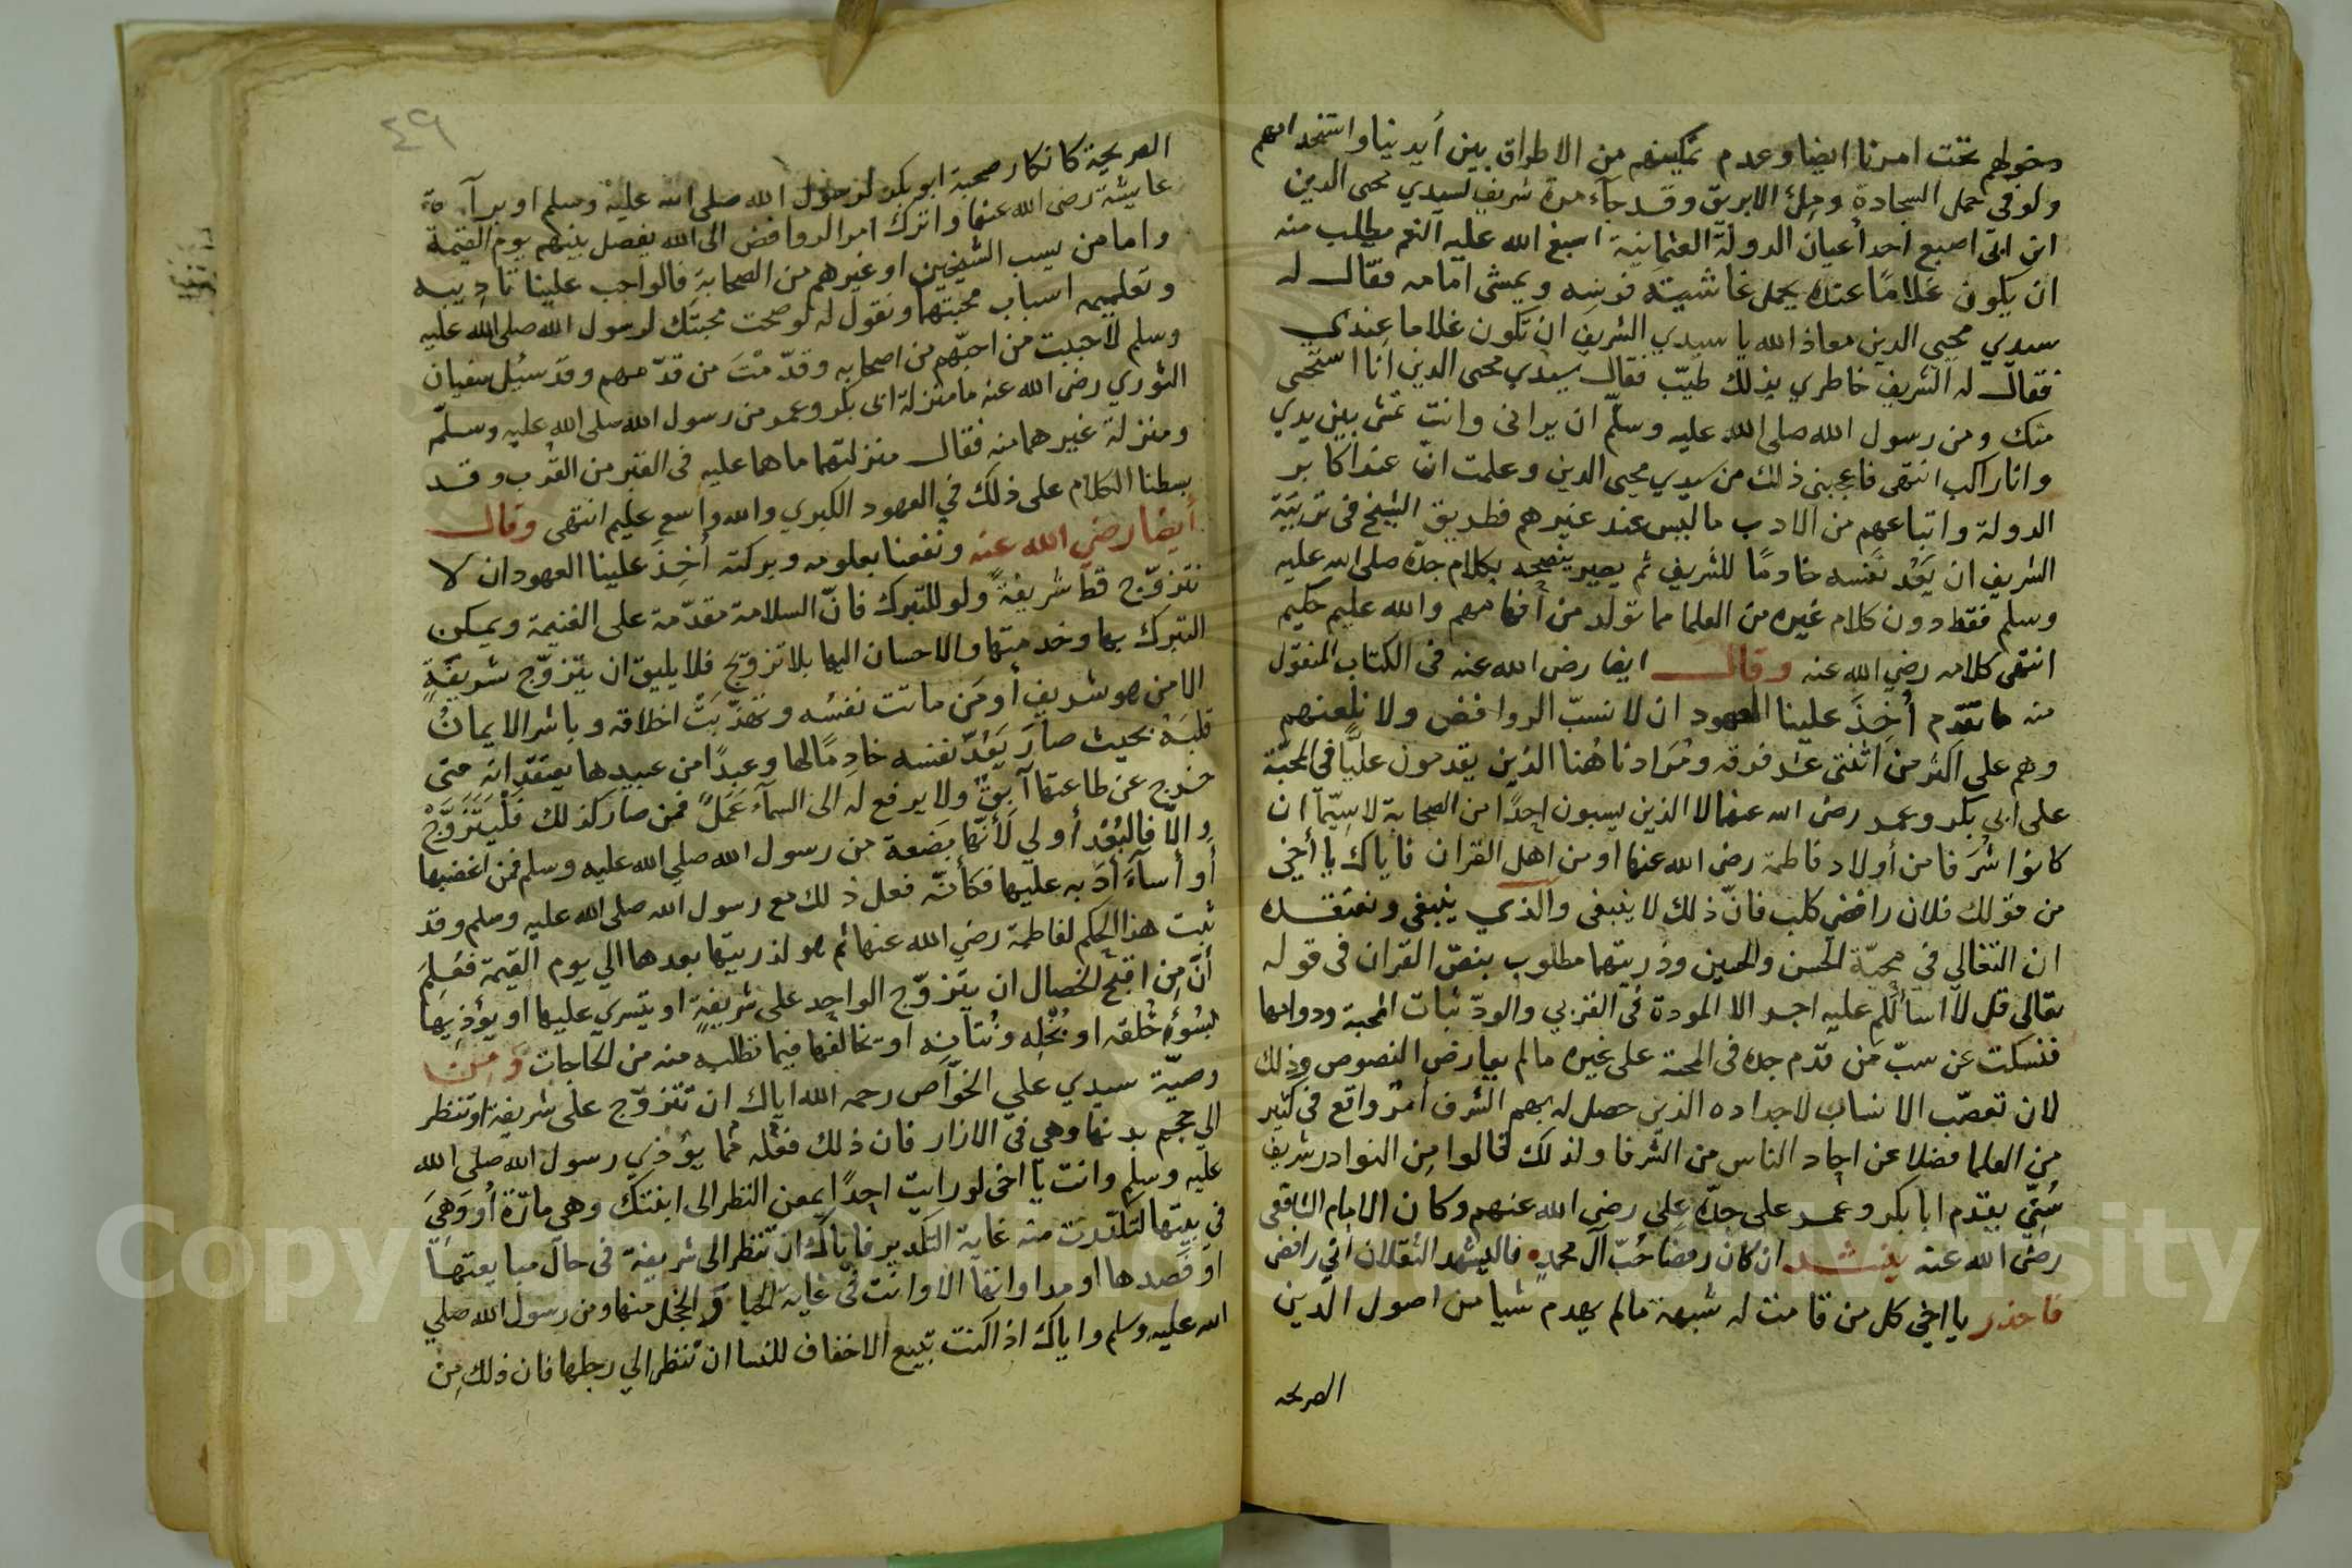 دخولهم تحت امرنا ايضا وعدم تمكينهم من الاطراق بين أيدينا واستخدامهم
ولو في حمل السجادة ومِلئ الابريق وقد جآء مرة شريف لسيدي محيى الدين
ابن ابى اصبع احد أعيان الدولة العثمانية اسبغ الله عليه النعم يطلب منه
ان يكون غلامًا عنده يحمل غاشية فرسه ويمشى امامه فقال له
سيدي محيي الدين معاذ الله يا سيدي الشريف ان تكون غلاما عندي
فقال له الشريف خاطري بذلك طيّب فقال سيدي محيى الدين انا استحى
منك ومن رسول الله صلى الله عليه وسلّم ان يرانى وانت تمشى بين يدي
وانا راكب انتهى فاعجبنى ذلك من سيدي محيى الدين وعلمت انّ عند اكابر
الدولة واتباعهم من الادب ما ليس عند غيرهم فطريق الشيخ فى تربيَة
الشريف ان يَعُدّ نفسه خادومًا للشريف ثم يصير ينصحه بكلام جدّه صلى الله عليه
وسلم فقط دون كلام غيره من العلما مما تولد من أفهامهم والله عليم حكيم
انتهى كلامه رضي الله عنه وقال ايضا رضى الله عنه فى الكتاب المنقول
منه ما تقدّم أُخِذَ علينا العهود ان لا نسبّ الروافض ولا نلعنهم
وهم على اكثر من اثنتى عشر فرقه ومُرَادنا هُنا الذين يقدمون عليًّا فى المحبّة
على ابى بكر وعمر رضى الله عنهما لا الذين يسبون احدًا من الصحابة لا سِيّما ان
كانوا شُرَفا من أولاد فاطمة رضى الله عنها او من اهل القران فاياك يا أخي
من قولك فلان رافضي كلب فانّ ذلك لا ينبغى والذي ينبغى ونعتقده
ان التغالي في محبّة الحسن والحسين وذريتهما مطلوب بنصّ القران فى قوله
تعالى قل لا اسألكم عليه اجرا الا المودة فى القربي والودّ ثبات المحبة ودوامها
فنسكت عن سبّ من قدّم جدّه فى المحبة على غيره ما لم يعارض النصوص وذلك
لان تعصّب الانسان لاجداده الذين حصل له بهم الشرف أمرٌ واقع فى كثير
من العلما فضلا عن احاد الناس من الشرفا ولذلك قالوا مِن النوادر شريف
سُنّي يقدم ابا بكر وعمر على جدّه علي رضي الله عنهم وكان الامام الشافعى
رضى الله عنه ينشد ان كان رفضا حُبّ آل محمدٍ فاليشهد الثقلان أنّي رافضى
فاحذر يا اخي كل من قامت له شبهة ما لم يهدم شيا من اصول الدين
الصريحه
٤٩
الصريحة كانكار صحبة ابو بكر لرسول الله صلى الله عليه وسلم او برآءة
عايشة رضى الله عنها واترك امر الروافض الى الله يفصل بينهم يوم القيمة
واما من يسب الشيخين او غيرهم من الصحابة فالواجب علينا تاديبه
وتعليمه اسباب محبتهما ونقول له لو صحت محبتك لرسول الله صلى الله عليه
وسلم لاحببت من احبّهم من اصحابه وقدّمْتَ من قدّمهم وقد سئل سفيان
الثوري رضى الله عنه ما منزلة ابى بكر وعمر من رسول الله صلى الله عليه وسلّم
ومنزلة غيرهما منه فقال منزلتهما ما هما عليه فى القبر من القُرب وقد
بسطنا الكلام على ذلك في العهود الكبرى والله واسع عليم انتهى وقال
أيضا رضي الله عنه ونفعنا بعلومه وبركته أُخِذَ علينا العهود ان لا
نتزوّج قط شريفةً ولو للتبرك فانّ السلامة مقدّمة على الغنيمة ويمكن
التبرك بها وخدمتها والاحسان اليها بلا تزويج فلا يليق ان يتزوّج شريفةٍ
الا من هو شريف أو مَن ماتت نفسُه وتهذّبَتْ اخلاقه وباشر الايمانُ
قلبَهُ بحيث صارَ يَعُدّ نفسه خادِمًا لها وعبدًا من عبيدها يعتقد انه متى
خرج عن طاعتها آبقٌ ولا يرفع له الى السمآء عَمَلٌ فمن صار كذلك فَلْيَتَزَوَّجْ
والّا فالبُعْد أولي لأنّها بَضعة من رسول الله صلى الله عليه وسلم فمن اغضبها
أو أسآءَ أدَبه عليها فكأنّه فعل ذلك مع رسول الله صلى الله عليه وسلم وقد
ثبت هذا الحكم لفاطمة رضي الله عنها ثم هو لذريتها بعدها الي يوم القيمة فعُلِمَ
أنّ مِن اقبح الخصال ان يتزوّج الواحد على شريفةٍ او يتسري عليها او يؤذِيها
لِسُوْءِ خُلقه او بُخْلِه ونُتانِه او يخالفها فيما تطلبه منه من الحاجات وَمِن
وصيّة سيدي علي الخوّاص رحمه الله اياك ان تتزوّج على شريفة او تنظر
الي حجم بدنها وهي فى الازار فان ذلك فعْله ممّا يؤذي رسول الله صلى الله
عليه وسلم وانت يا اخى لو رايت احدًا يمعن النظر الى ابنتك وهى مارّة أو وَهِيَ
في بيتها لتكدرت منه غاية التكدير فاياك ان تنظر الى شريفة فى حال مبايعتها
او قصدها او مداواتها الا وانت فى غاية الحيا والخجل منها ومن رسول الله صلي
الله عليه وسلم واياك اذا كنت تبيع الاخفاف للنسا ان تنظر الي رجلها فان ذلك مِن
Copyright © King Saud University